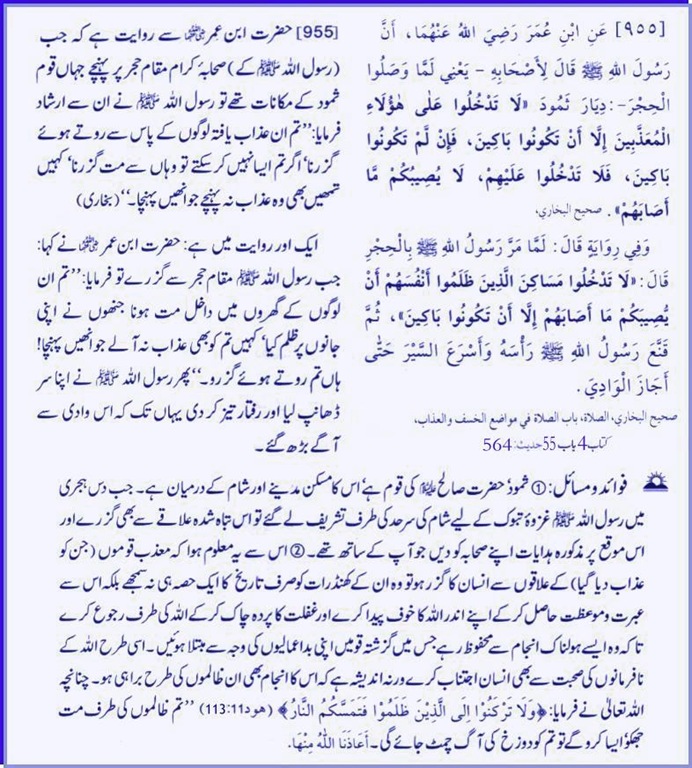 [٩٥٥] عَنِ ابْنِ عُمَرَ رَضِيَ اللهُ عَنْهُمَا، أَنَّ
رَسُولَ اللهِ ﷺ قَالَ لِأَصْحَابِهِ - يَعْنِي لَمَّا وَصَلُوا
الْحِجْرَ-: دِيَارَ ثَمُودَ «لَا تَدْخُلُوا عَلَى هٰؤُلَاءِ
الْمُعَذَّبِينَ إِلَّا أَنْ تَكُونُوا بَاكِينَ، فَإِنْ لَّمْ تَكُونُوا
بَاكِينَ، فَلَا تَدْخُلُوا عَلَيْهِمْ، لَا يُصِيبُكُمْ مَا
أَصَابَهُمْ». صحيح البخاري،
وَفِي رِوَايَةٍ قَالَ: لَمَّا مَرَّ رَسُولُ اللهِ ﷺ بِالْحِجْرِ
قَالَ: «لَا تَدْخُلُوا مَسَاكِنَ الَّذِينَ ظَلَمُوا أَنْفُسَهُمْ أَنْ
يُّصِيبَكُمْ مَا أَصَابَهُمْ إِلَّا أَنْ تَكُونُوا بَاكِينَ»، ثُمَّ
قَنَّعَ رَسُولُ اللهِ ﷺ رَأْسَهُ وَأَسْرَعَ السَّيْرَ حَتَّى
أَجَازَ الْوَادِيَ.
صحيح البخاري، الصلاة، باب الصلاة في مواضع الخسف والعذاب،
کتاب 4 باب 55 حديث: 564
[955] حضرت ابن عمر ؓ سے روایت ہے کہ جب
(رسول اللہ ﷺ کے) صحابۂ کرام مقام حجر پر پہنچے جہاں قوم
ثمود کے مکانات تھے تو رسول اللہ ﷺ نے ان سے ارشاد
فرمایا: ”تم ان عذاب یافتہ لوگوں کے پاس سے روتے ہوئے
گزرنا، اگر تم ایسا نہیں کر سکتے تو وہاں سے مت گزرنا، کہیں
تمھیں بھی وہ عذاب نہ پہنچے جو انھیں پہنچا۔“ (بخاری)
ایک اور روایت میں ہے: حضرت ابن عمر ؓ نے کہا:
جب رسول اللہ ﷺ مقام حجر سے گزرے تو فرمایا: ”تم ان
لوگوں کے گھروں میں داخل مت ہونا جنھوں نے اپنی
جانوں پر ظلم کیا، کہیں تم کو بھی عذاب نہ آ لے جو انھیں پہنچا!
ہاں تم روتے ہوئے گزرو۔“ پھر رسول اللہ ﷺ نے اپنا سر
ڈھانپ لیا اور رفتار تیز کر دی یہاں تک کہ اس وادی سے
آگے بڑھ گئے۔
فوائد و مسائل: ① ثمود، حضرت صالح ؑ کی قوم ہے، اس کا مسکن مدینے اور شام کے درمیان ہے۔ جب دس ہجری
میں رسول اللہ ﷺ غزوۂ تبوک کے لیے شام کی سرحد کی طرف تشریف لے گئے تو اس تباہ شدہ علاقے سے بھی گزرے اور
اس موقع پر مذکورہ ہدایات اپنے صحابہ کو دیں جو آپ کے ساتھ تھے۔ ② اس سے یہ معلوم ہوا کہ معذب قوموں (جن کو
عذاب دیا گیا) کے علاقوں سے انسان کا گزر ہو تو وہ ان کے کھنڈرات کو صرف تاریخ کا ایک حصہ ہی نہ سمجھے بلکہ اس سے
عبرت و موعظت حاصل کر کے اپنے اندر اللہ کا خوف پیدا کرے اور غفلت کا پردہ چاک کر کے اللہ کی طرف رجوع کرے
تا کہ وہ ایسے ہولناک انجام سے محفوظ رہے جس میں گزشتہ قومیں اپنی بداعمالیوں کی وجہ سے مبتلا ہوئیں۔ اسی طرح اللہ کے
نافرمانوں کی صحبت سے بھی انسان اجتناب کرے ورنہ اندیشہ ہے کہ اس کا انجام بھی ان ظالموں کی طرح برا ہی ہو۔ چنانچہ
اللہ تعالیٰ نے فرمایا: ﴿وَلَا تَرْكَنُوْا اِلَى الَّذِيْنَ ظَلَمُوْا فَتَمَسَّكُمُ النَّارُ﴾ (ھود 113:11) ”تم ظالموں کی طرف مت
جھکو، ایسا کرو گے تو تم کو دوزخ کی آگ چمٹ جائے گی۔ أَعَاذَنَا اللهُ مِنْهَا.